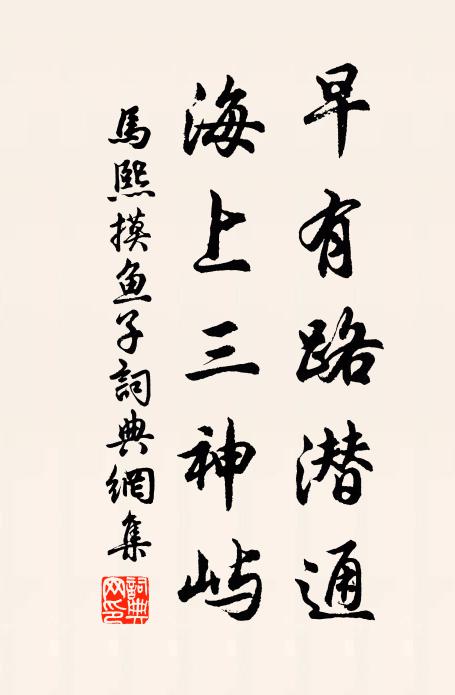 早有路潜通
海上三神屿
馬熙摸鱼子詞典網集
詞典网印